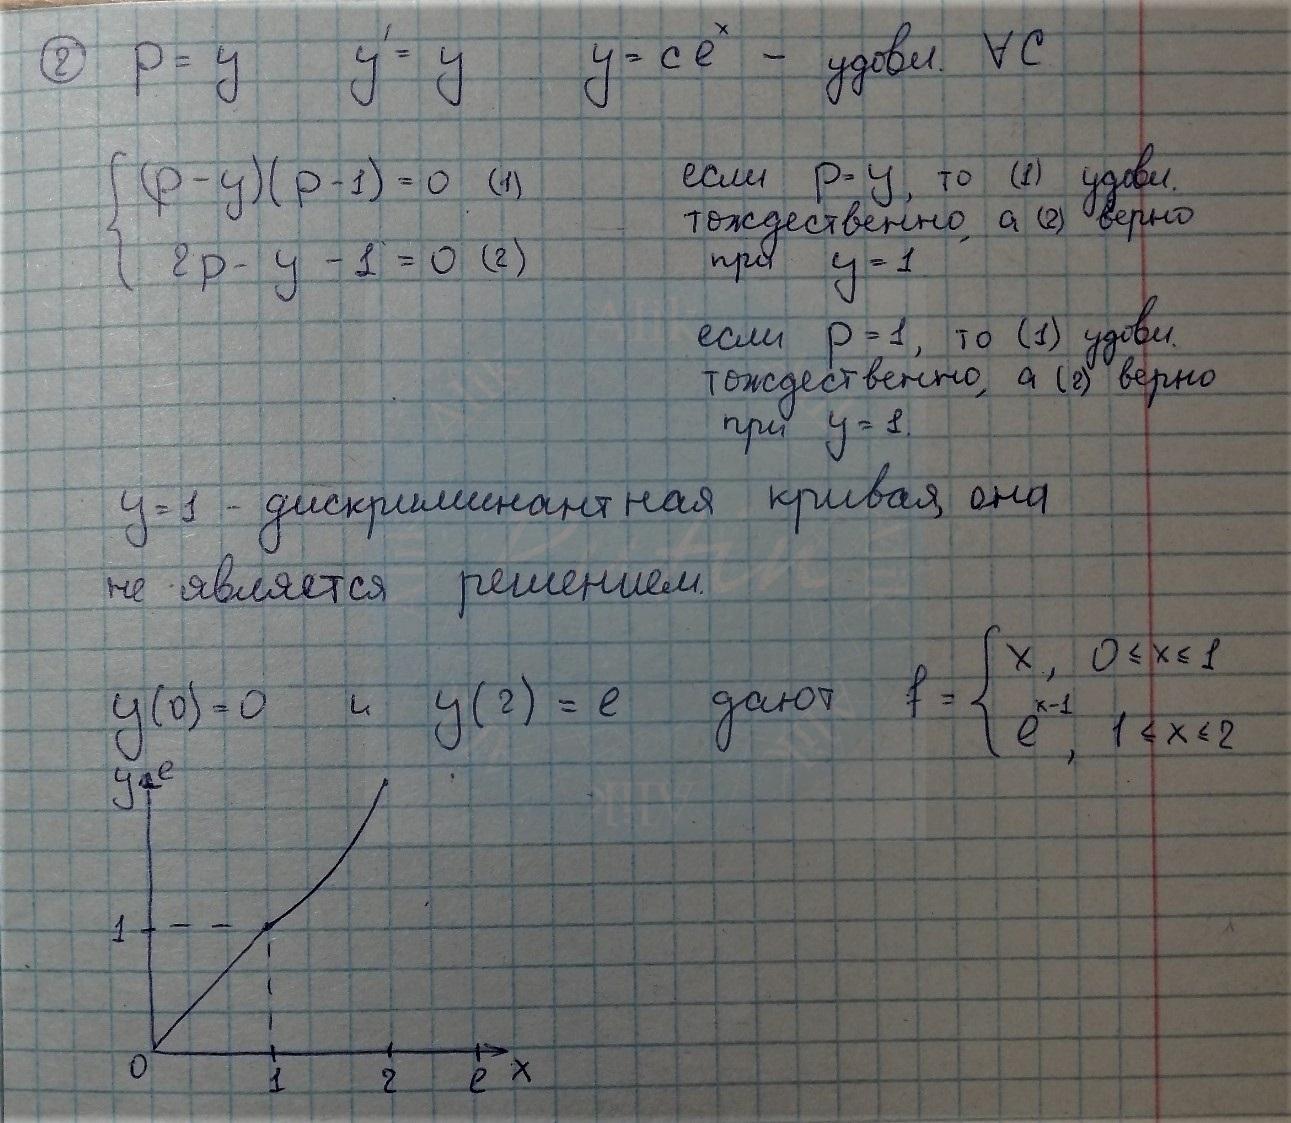 ② p = y y' = y y = ce^x - удовл. ∀C
(p - y)(p - 1) = 0 (1) если p = y, то (1) удовл.
тождественно, а (2) верно
2p - y - 1 = 0 (2) при y = 1
если p = 1, то (1) удовл.
тождественно, а (2) верно
при y = 1.
y = 1 - дискриминантная кривая, она
не является решением.
y(0) = 0 и y(2) = e дают f = { x, 0 ≤ x ≤ 1
e^{x-1}, 1 ≤ x ≤ 2
y e
1
0 1 2 e x